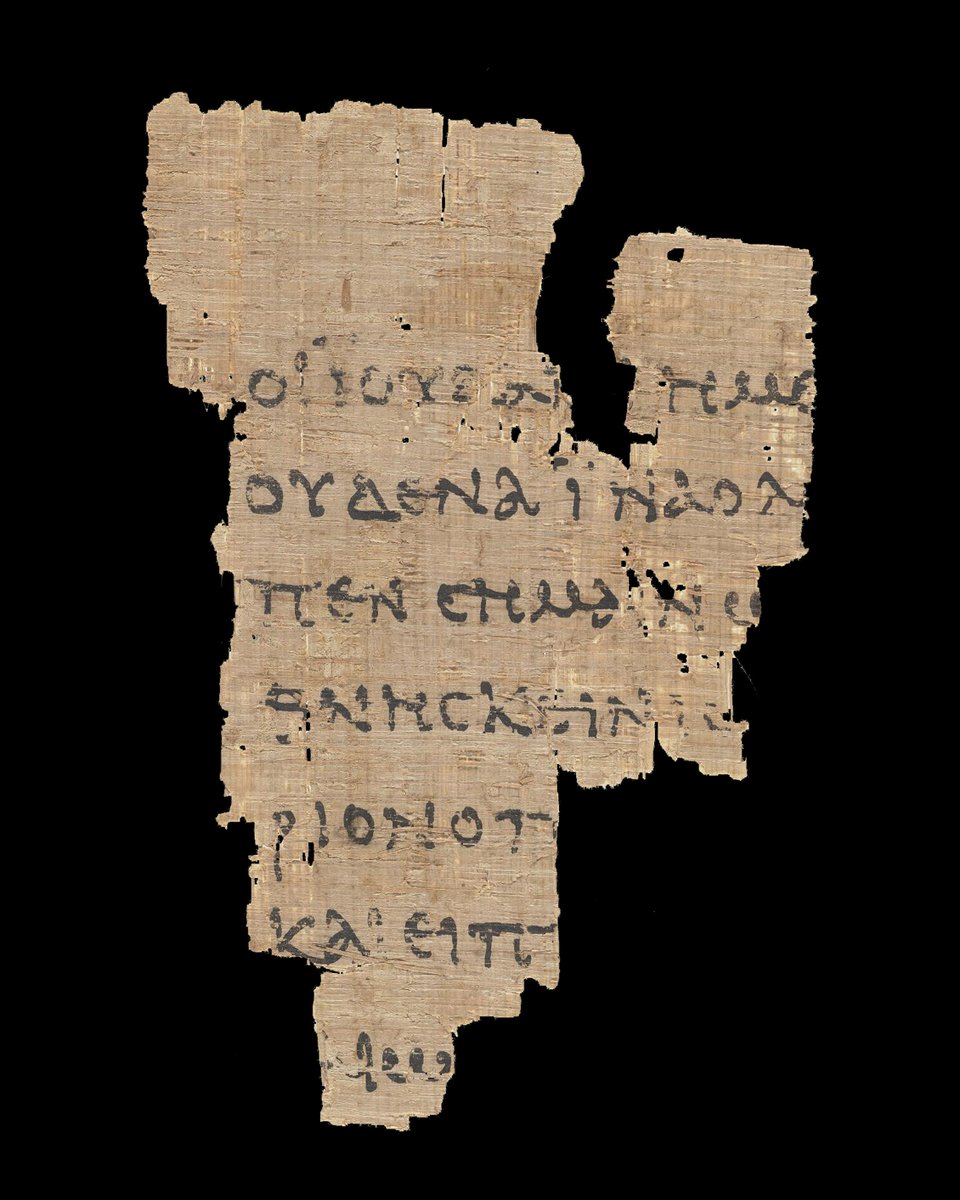 ΟΙ ΙΟΥΔΑΙ ΗΜΕ
ΟΥΔΕΝΑ ΪΝΑ Ο Λ
ΠΕΝ ϹΗΜΑΙΝω
ΘΝΗϹΚΕΙΝ ΙϹ
ΡΙΟΝ Ο Π
ΚΑΙ ΕΙΠ